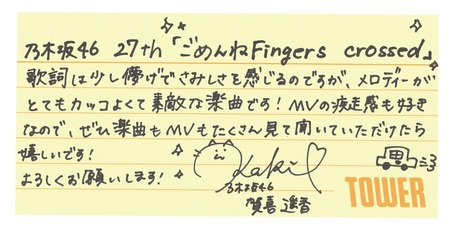 乃木坂46 27th「ごめんねFingers crossed」
歌詞は少し儚げでさみしさを感じるのですが、メロディーが
とてもカッコよくて素敵な楽曲です！MVの疾走感も好き
なので、ぜひ楽曲もMVもたくさん見て聞いていただけたら
嬉しいです！
よろしくお願いします！
Kaki
乃木坂46
賀喜 遥香
TOWER